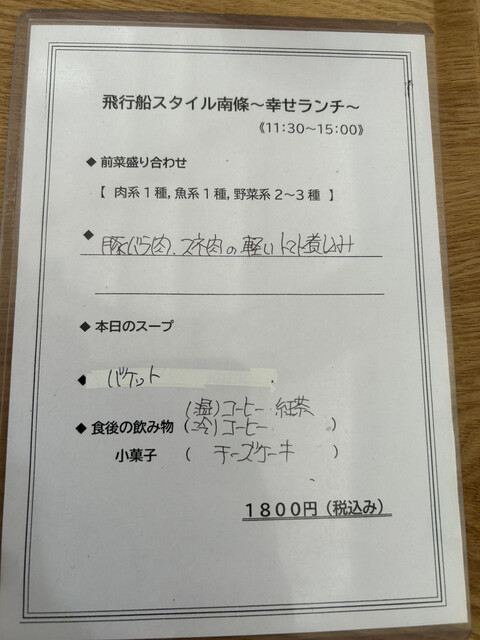 飛行船スタイル南條～幸せランチ～
《11:30～15:00》
◆ 前菜盛り合わせ
【 肉系1種, 魚系1種, 野菜系2～3種 】
◆ 豚バラ肉、スネ肉の軽いトマト煮込み
◆ 本日のスープ
◆ バケット
(温)コーヒー 紅茶
◆ 食後の飲み物 ( (冷)コーヒー )
小菓子 ( チーズケーキ )
1800円（税込み）